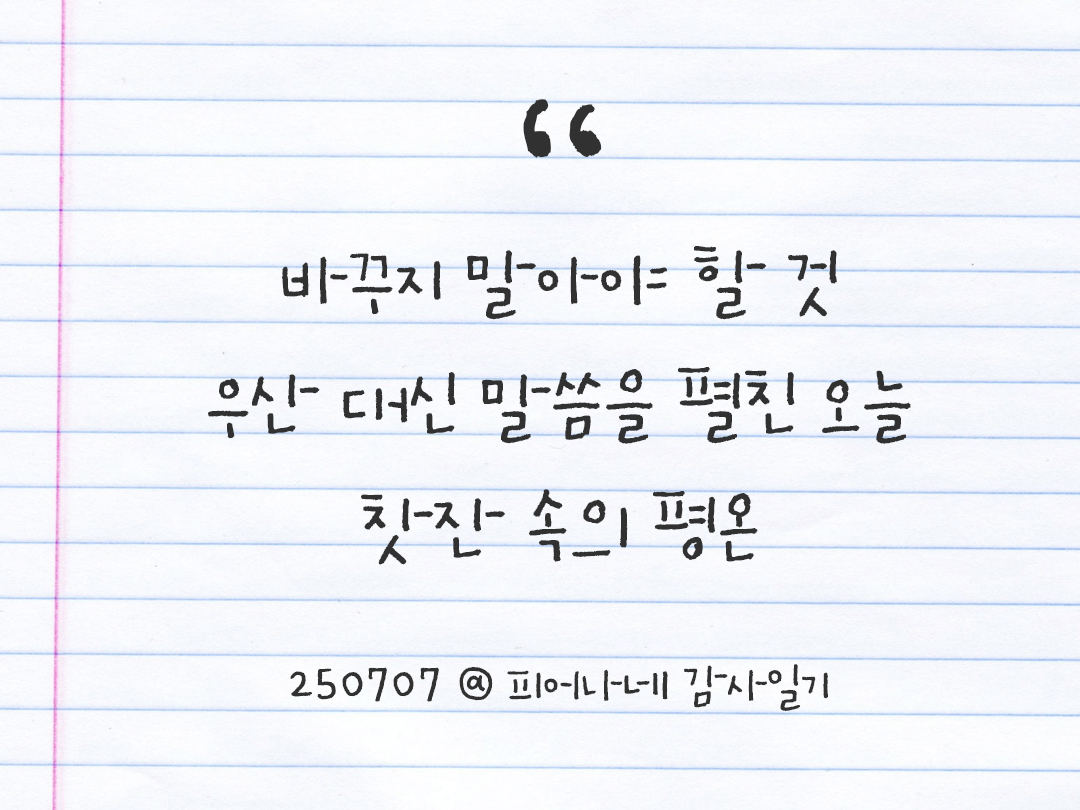 “
바꾸지 말아야 할 것
우산 대신 말씀을 펼친 오늘
찻잔 속의 평온
250707 @ 피어나네 감사일기